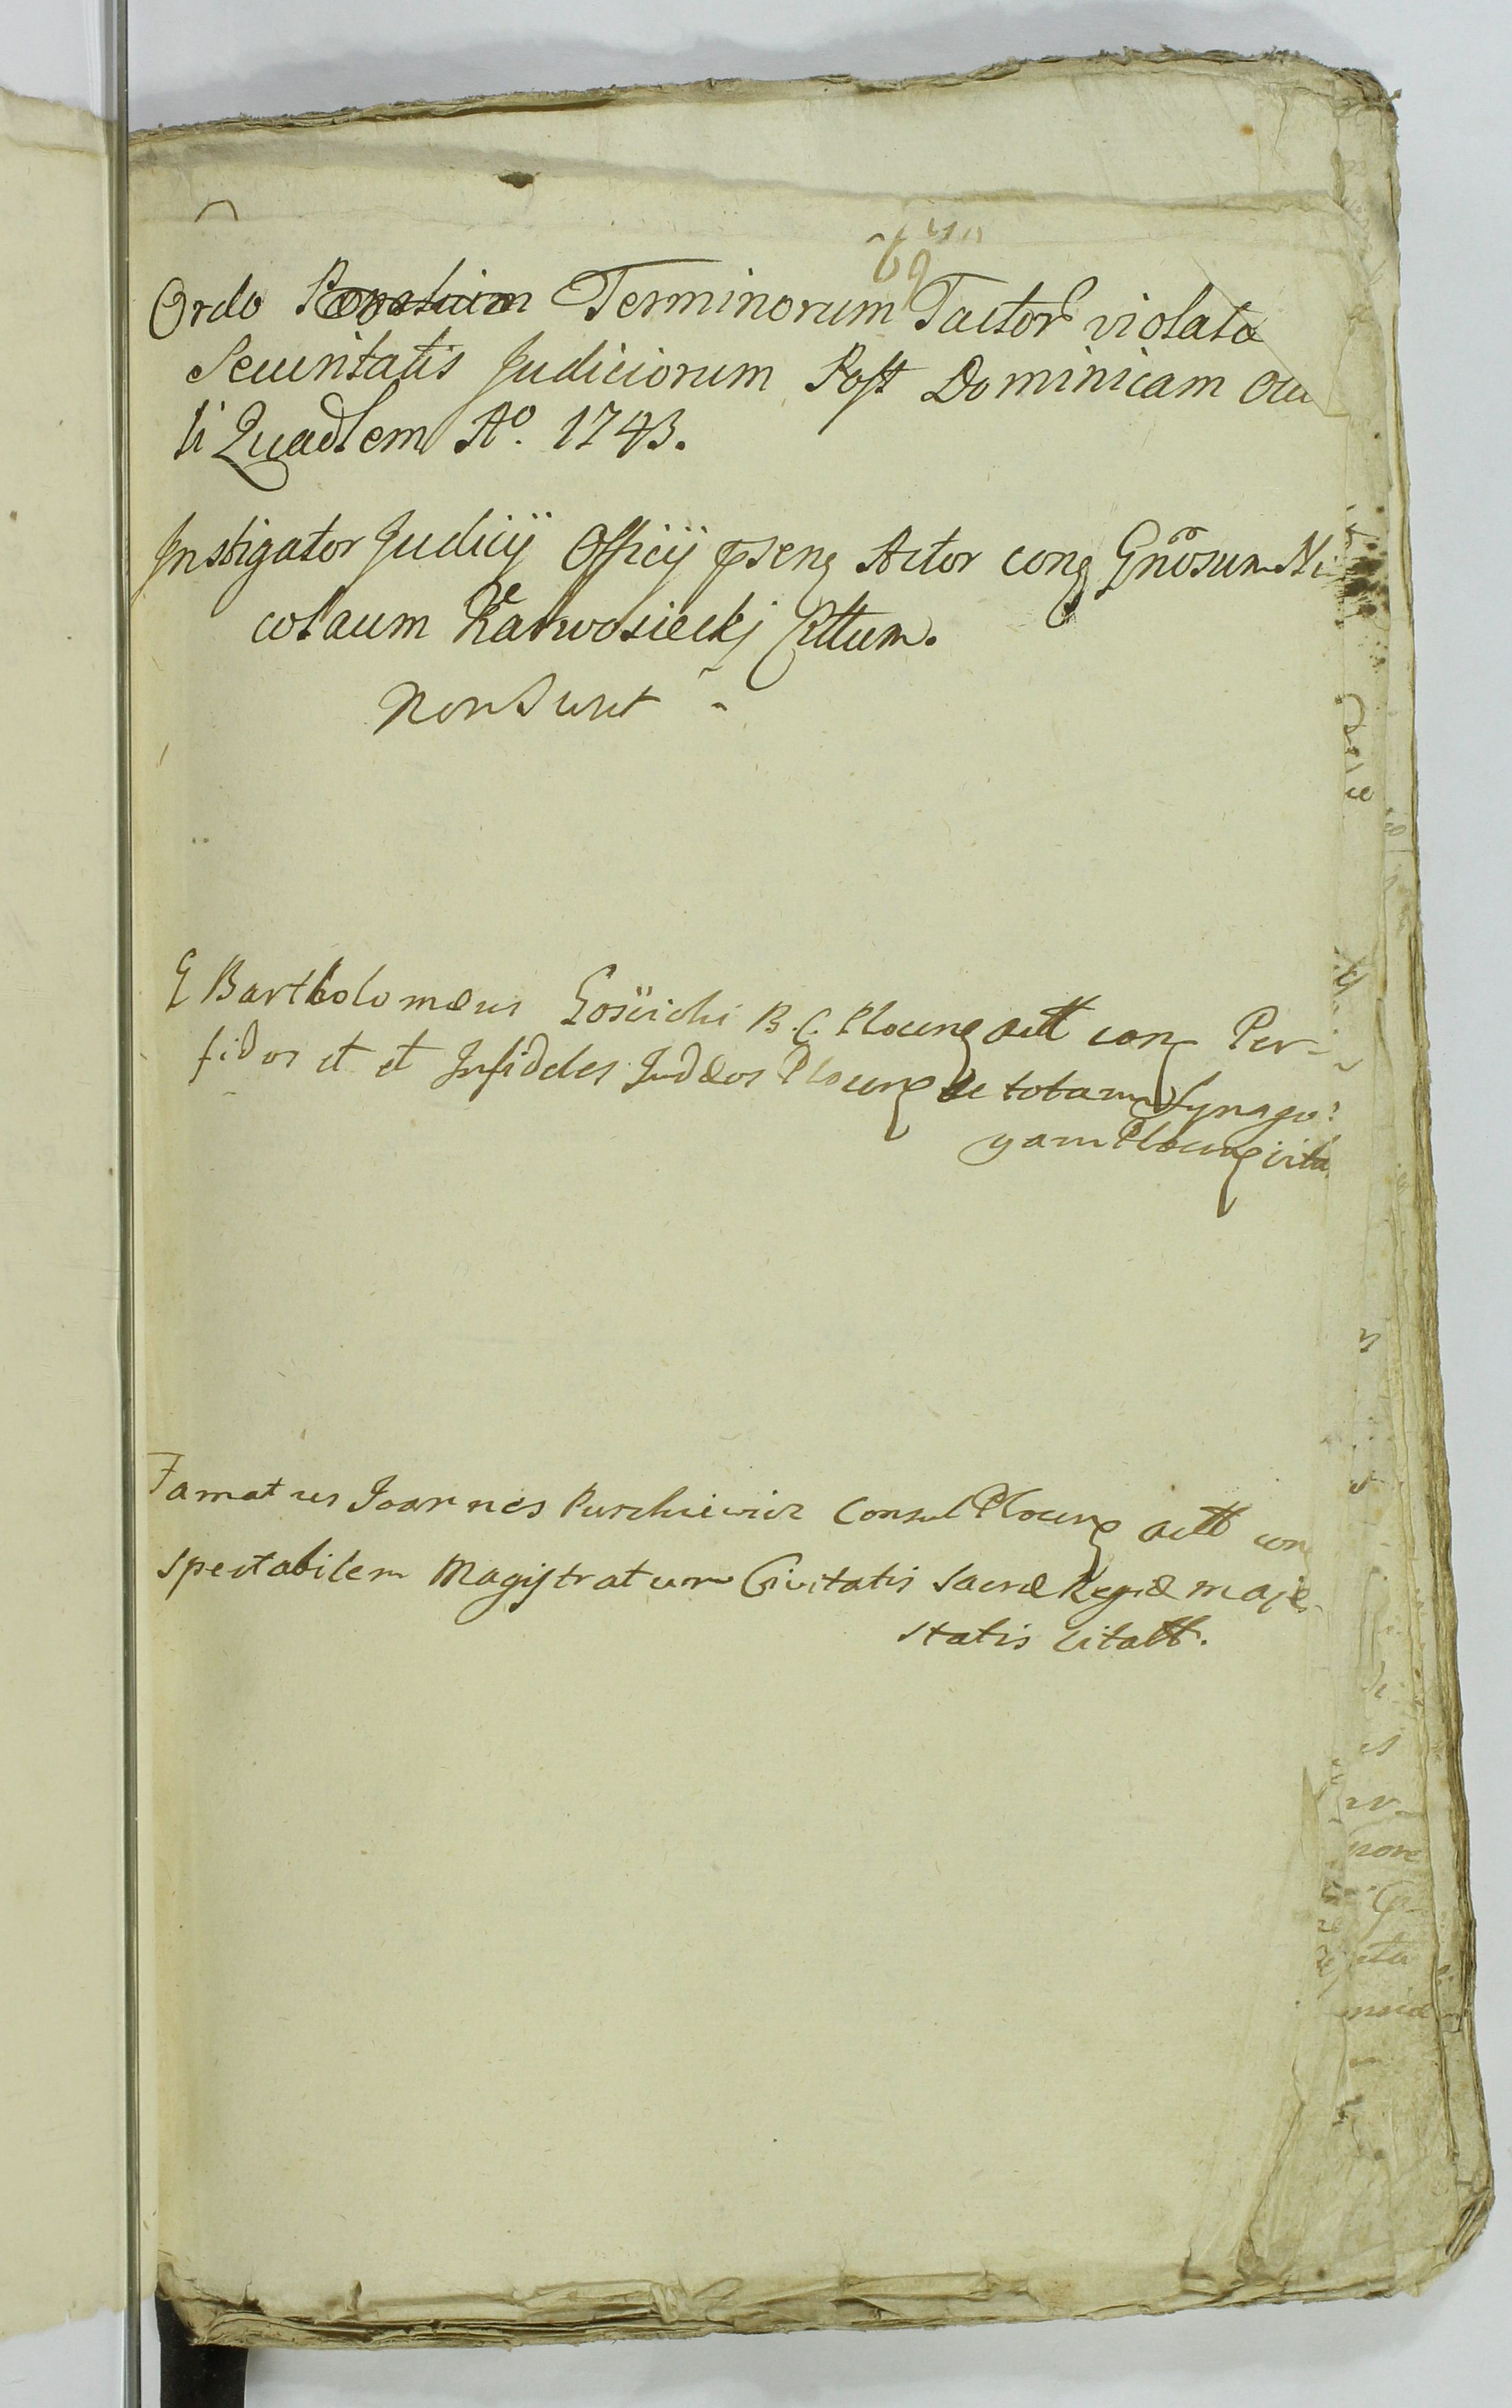 Ordo Terminorum Tactor violata
Securitatis Judiciorum Post Dominicam Ocu
li Quadlem Ao. 1743.
Instigator Judicij Officij pseng Actor cong Gnosum Ni
colaum Karwosieckj Cittum.
Non Sunt
G Bartholomæus Gosïicki B. C. Ploceng actt cong Per-
fidos et et Infideles Judæos Ploceng et totam Synago:
gam Ploceng cita
Famatus Joannes Consul Ploceng actt con
spectabilem Magistratum Civitatis Sacræ Regiæ maje-
statis citatt.